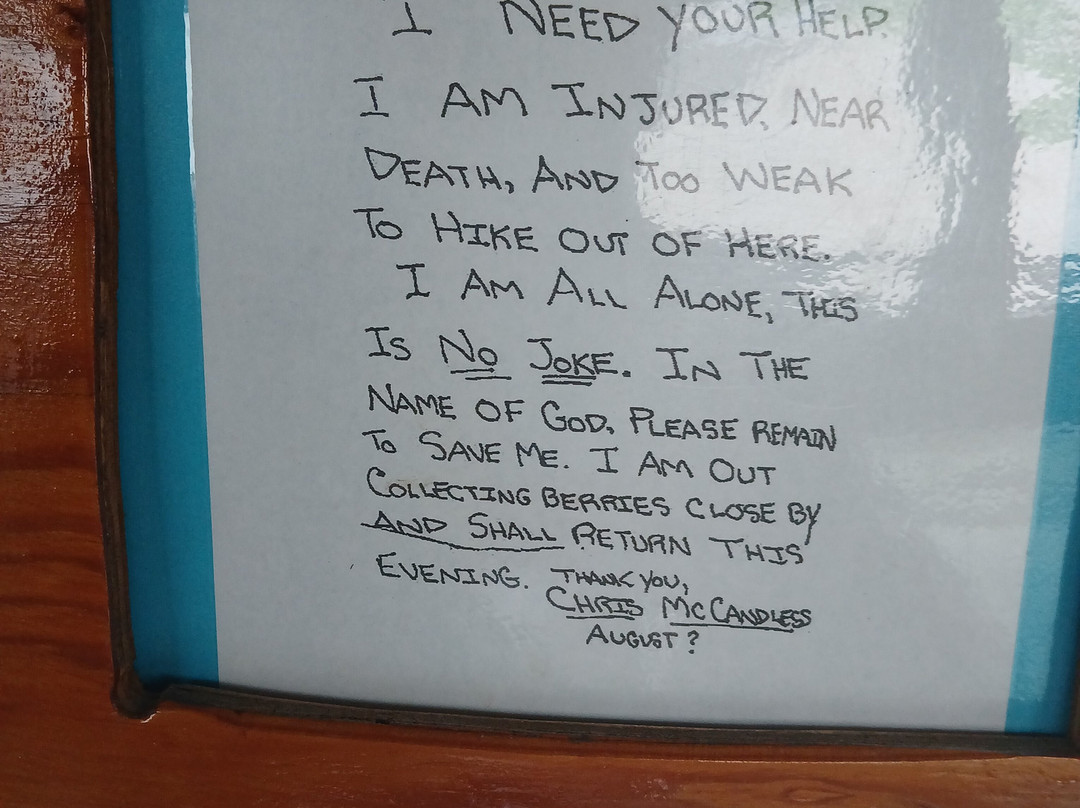 I NEED YOUR HELP.
I AM INJURED, NEAR
DEATH, AND TOO WEAK
TO HIKE OUT OF HERE.
I AM ALL ALONE, THIS
IS NO JOKE. IN THE
NAME OF GOD, PLEASE REMAIN
TO SAVE ME. I AM OUT
COLLECTING BERRIES CLOSE BY
AND SHALL RETURN THIS
EVENING. THANK YOU,
CHRIS McCANDLESS
AUGUST?